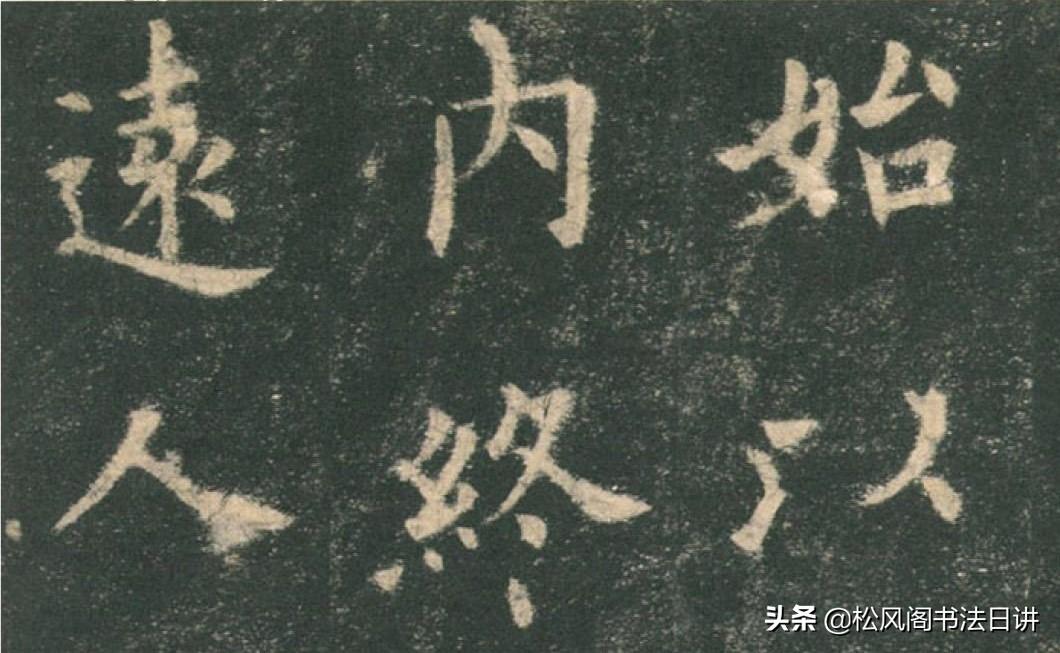 始以
内終
遠人
头条 @松风阁书法日讲